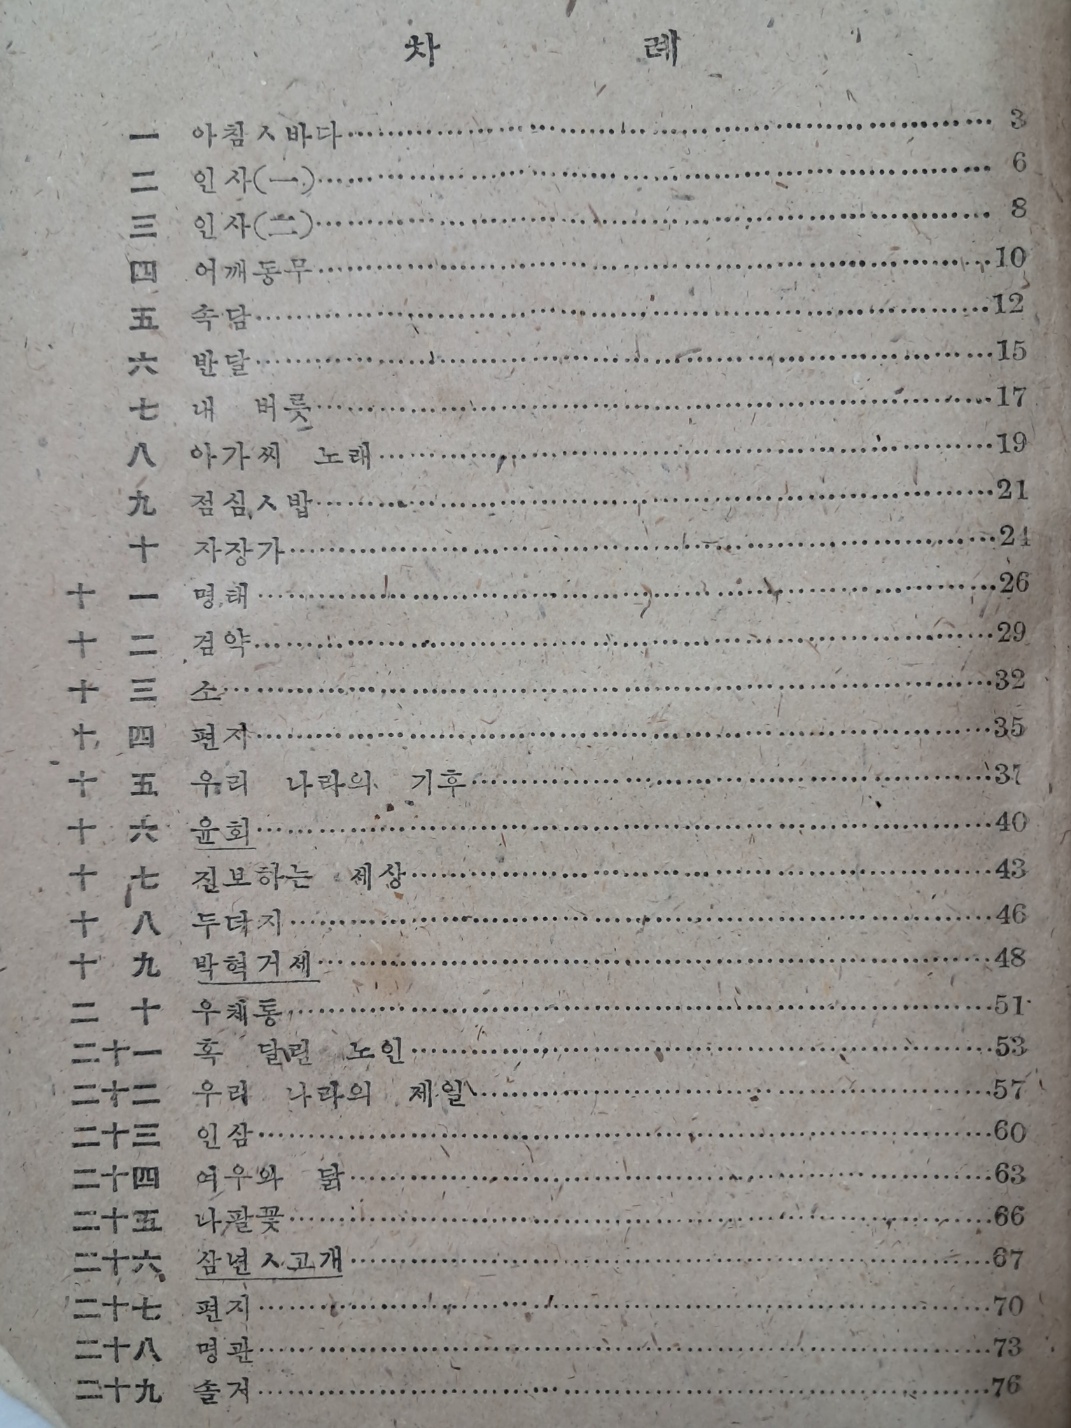 차 례
一 아침ㅅ바다 3
二 인사(一) 6
三 인사(二) 8
四 어깨동무 10
五 속담 12
六 반달 15
七 내 버릇 17
八 아가씨 노래 19
九 점심ㅅ밥 21
十 자장가 24
十一 명태 26
十二 검약 29
十三 소 32
十四 편지 35
十五 우리 나라의 기후 37
十六 윤회 40
十七 진보하는 세상 43
十八 두더지 46
十九 박혁거세 48
二十 우체통 51
二十一 혹 달린 노인 53
二十二 우리 나라의 제일 57
二十三 인삼 60
二十四 여우와 닭 63
二十五 나팔꽃 66
二十六 삼년ㅅ고개 67
二十七 편지 70
二十八 명관 73
二十九 솔거 76